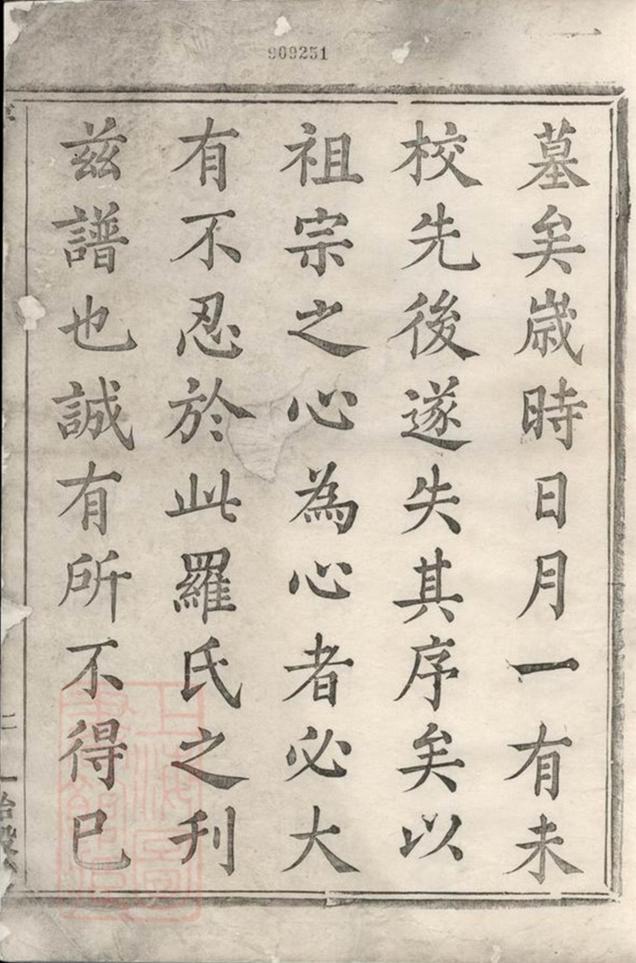 909251
墓矣歳時日月一有未
校先後遂失其序矣以
祖宗之心為心者必大
有不忍於此羅氏之刋
兹譜也誠有所不得已
二